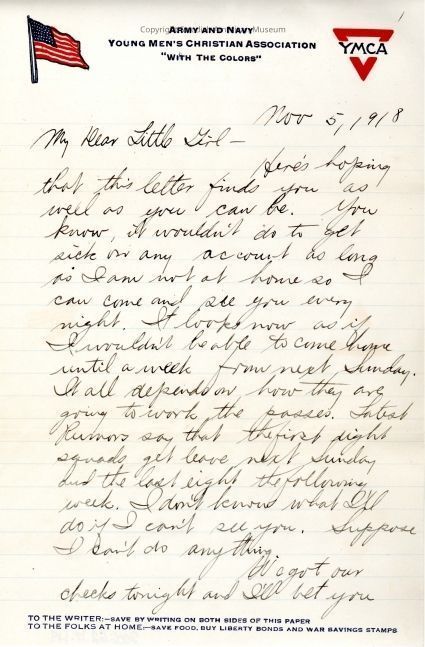 ARMY AND NAVY
YOUNG MEN'S CHRISTIAN ASSOCIATION
"WITH THE COLORS"
YMCA
1
Nov 5, 1918
My Dear Little Girl —
Here's hoping
that this letter finds you as
well as you can be. You
know, it wouldn't do to get
sick on any account as long
as I am not at home so I
can come and see you every
night. It looks now as if
I wouldn't be able to come home
until a week from next Sunday.
It all depends on how they are
going to work the passes. Latest
Rumors say that the first eight
squads get leave next Sunday
and the last eight the following
week. I don't know what I'll
do if I can't see you. Suppose
I can't do anything.
We got our
checks tonight and I'll bet you
TO THE WRITER:—SAVE BY WRITING ON BOTH SIDES OF THIS PAPER
TO THE FOLKS AT HOME:—SAVE FOOD, BUY LIBERTY BONDS AND WAR SAVINGS STAMPS